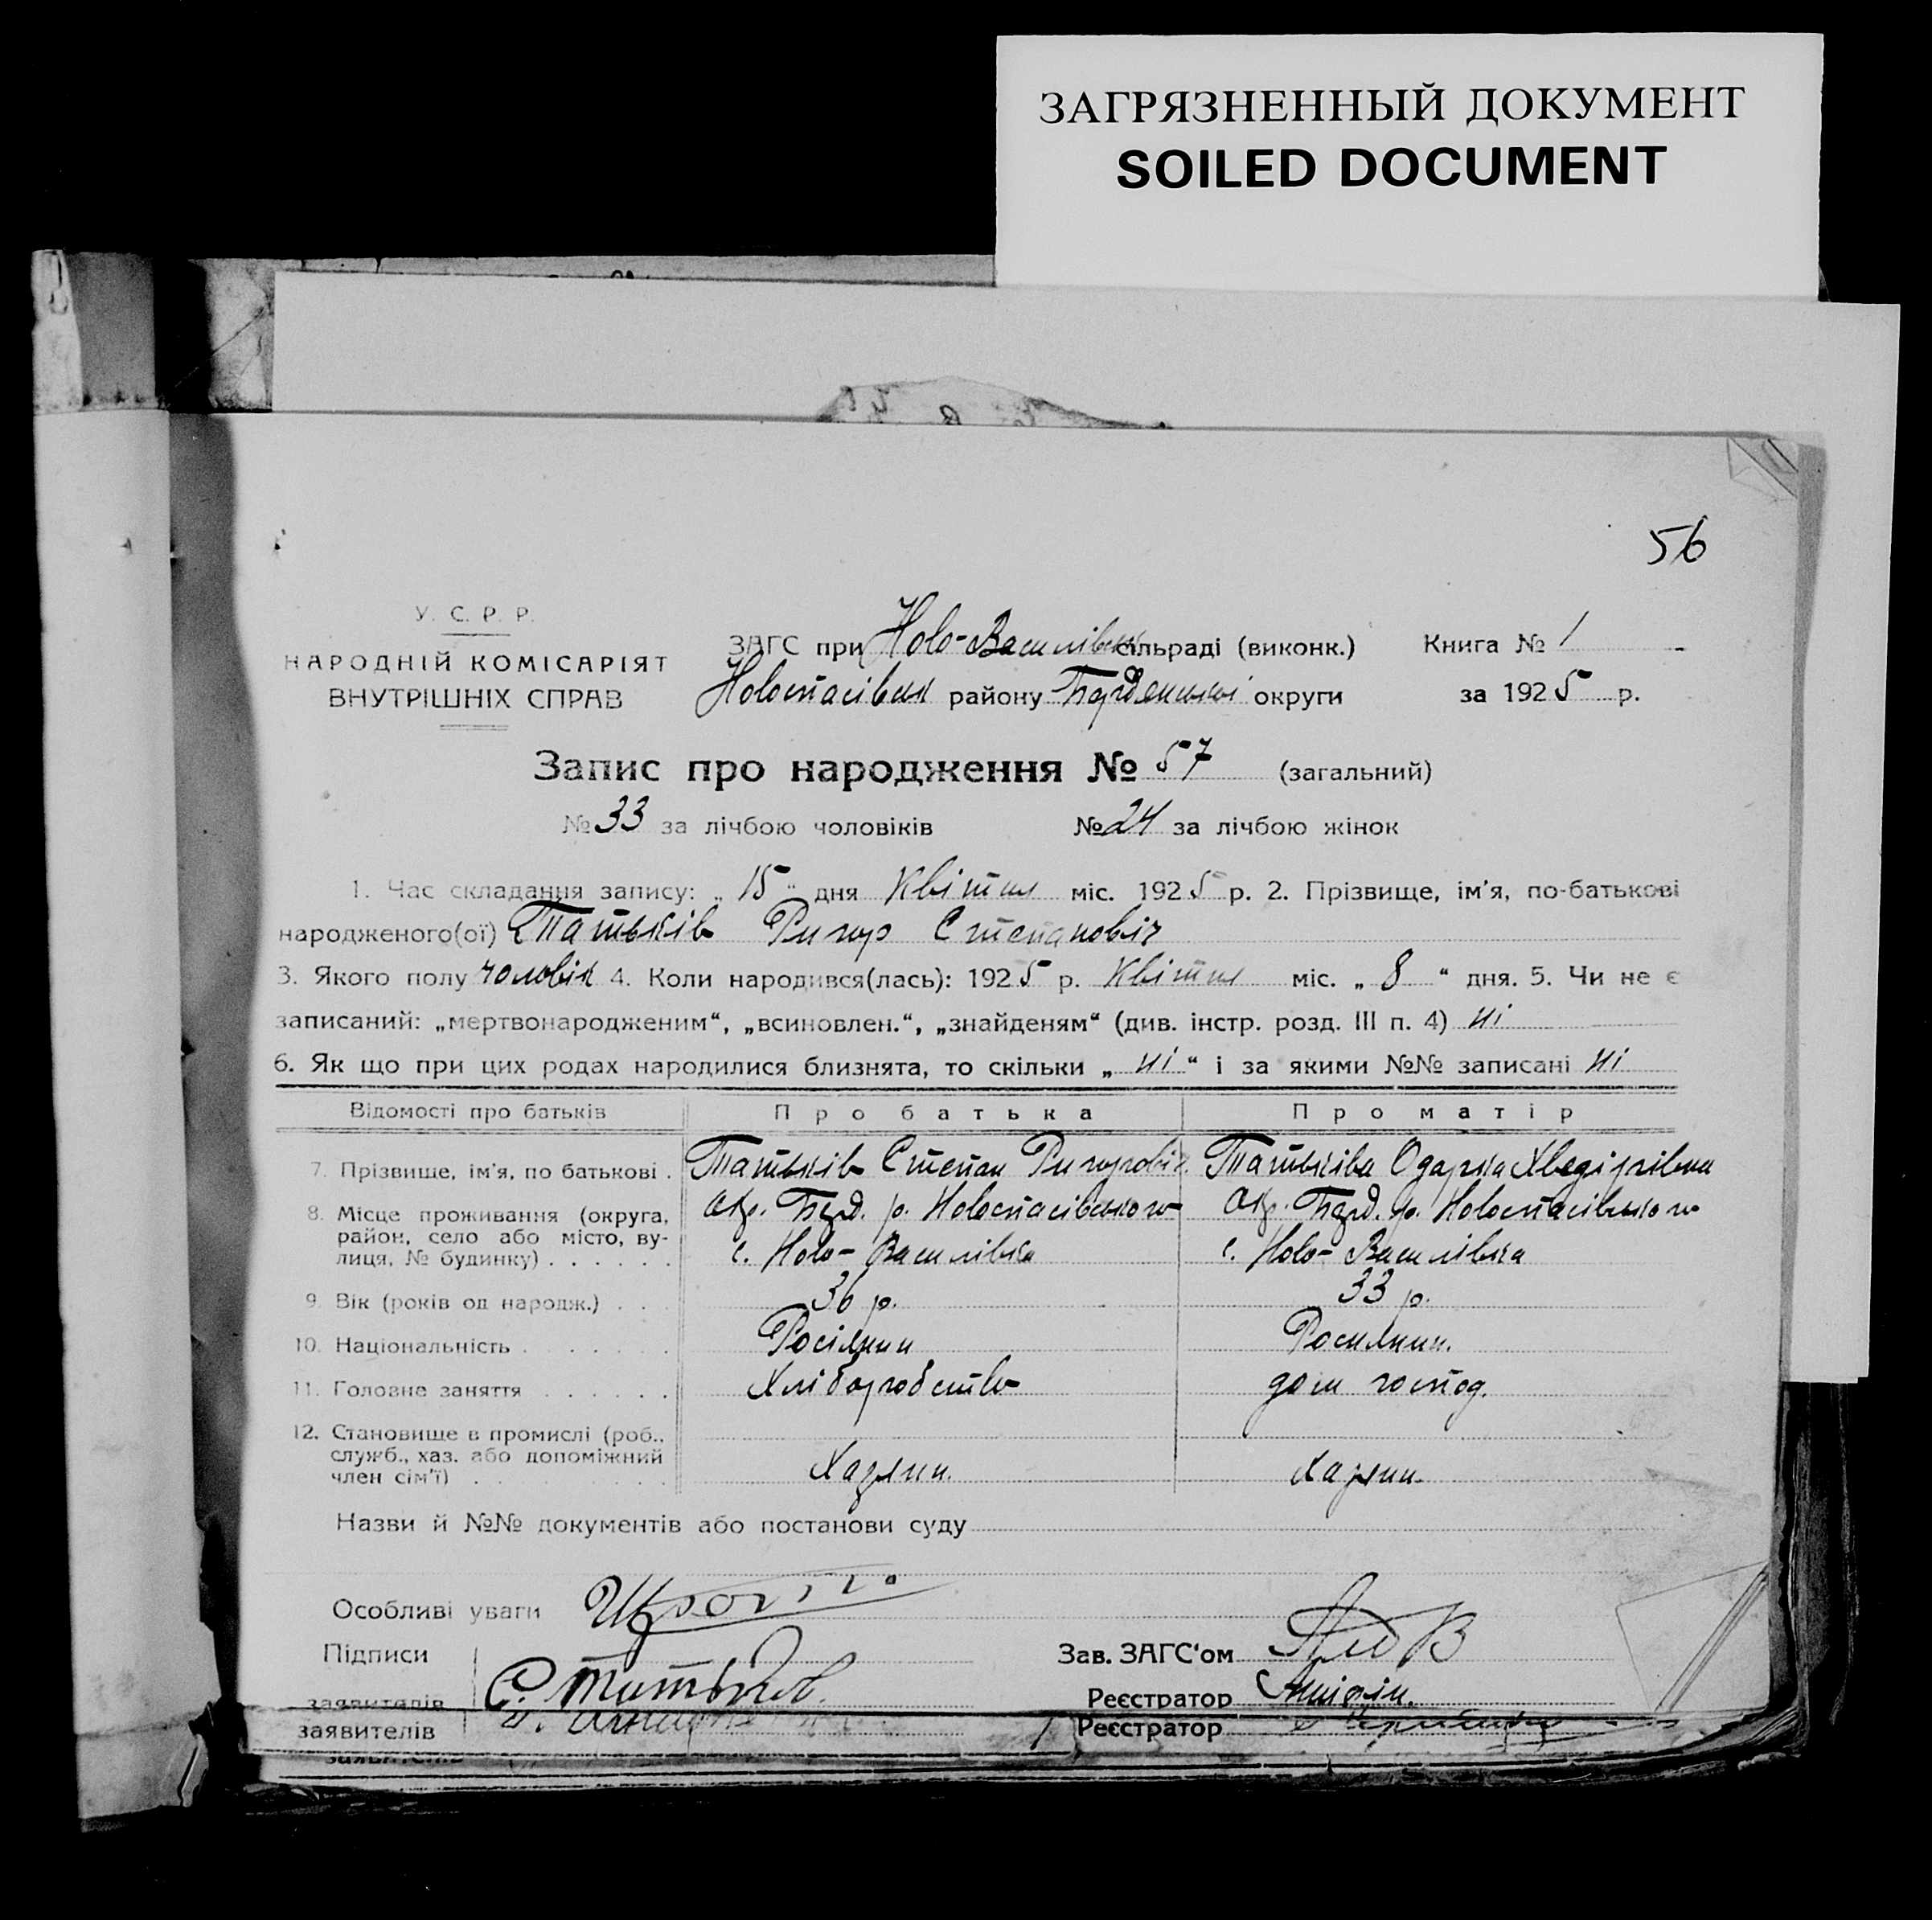 ЗАГРЯЗНЕННЫЙ ДОКУМЕНТ
SOILED DOCUMENT
56
У. С. Р. Р.
НАРОДНІЙ КОМІСАРІЯТ
ВНУТРІШНІХ СПРАВ
ЗАГС при Ново-Василівск сільраді (виконк.)
Новоспасівськ району Бердянської округи
Книга № 1
за 1925 р.
Запис про народження № 57 (загальний)
№ 33 за лічбою чоловіків № 24 за лічбою жінок
1. Час складання запису: „ 15 “ дня Квітня міс. 1925 р. 2. Прізвище, ім'я, по-батькові
народженого(ої) Татьків Ригор Степановіч
3. Якого полу чоловік 4. Коли народився(лась): 1925 р. Квітня міс. „ 8 “ дня. 5. Чи не є
записаний: „мертвонародженим“, „всиновлен.“, „знайденям“ (див. інстр. розд. III п. 4) ні
6. Як що при цих родах народилися близнята, то скільки „ ні “ і за якими №№ записані ні
Відомості про батьків Про батька Про матір
7. Прізвище, ім'я, по батькові . Татьків Степан Ригоровіч. Татьківа Одарка Хведірівна
8. Місце проживання (округа, район, село або місто, вулиця, № будинку) . . . . . .
Окр. Берд. р. Новоспасівського
с. Ново-Василівка
Окр. Берд. р. Новоспасівського
с. Ново-Василівка
9. Вік (років од народж.) . . 36 р. 33 р.
10. Національність . . . . . . . Росіянин Росиянин.
11. Головне заняття . . . . . . Хліборобство дом господ.
12. Становище в промислі (роб.,
служб., хаз. або допоміжний
член сім'ї) . . . . . . . Хазяин. Хазяин.
Назви й №№ документів або постанови суду
Особливі уваги
Підписи
заявителів С. Татьков.
Зав. ЗАГС'ом
Реєстратор
заявителів
Реєстратор